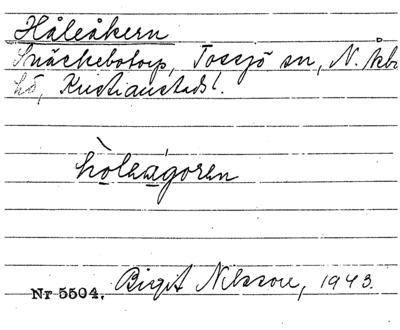 Håleåkern
Snäckebotorp, Tossjö sn, N. Åbo
hd, Kristianstads l.
hòleàgoren
Nr 5504. Birgit Nilsson, 1943.